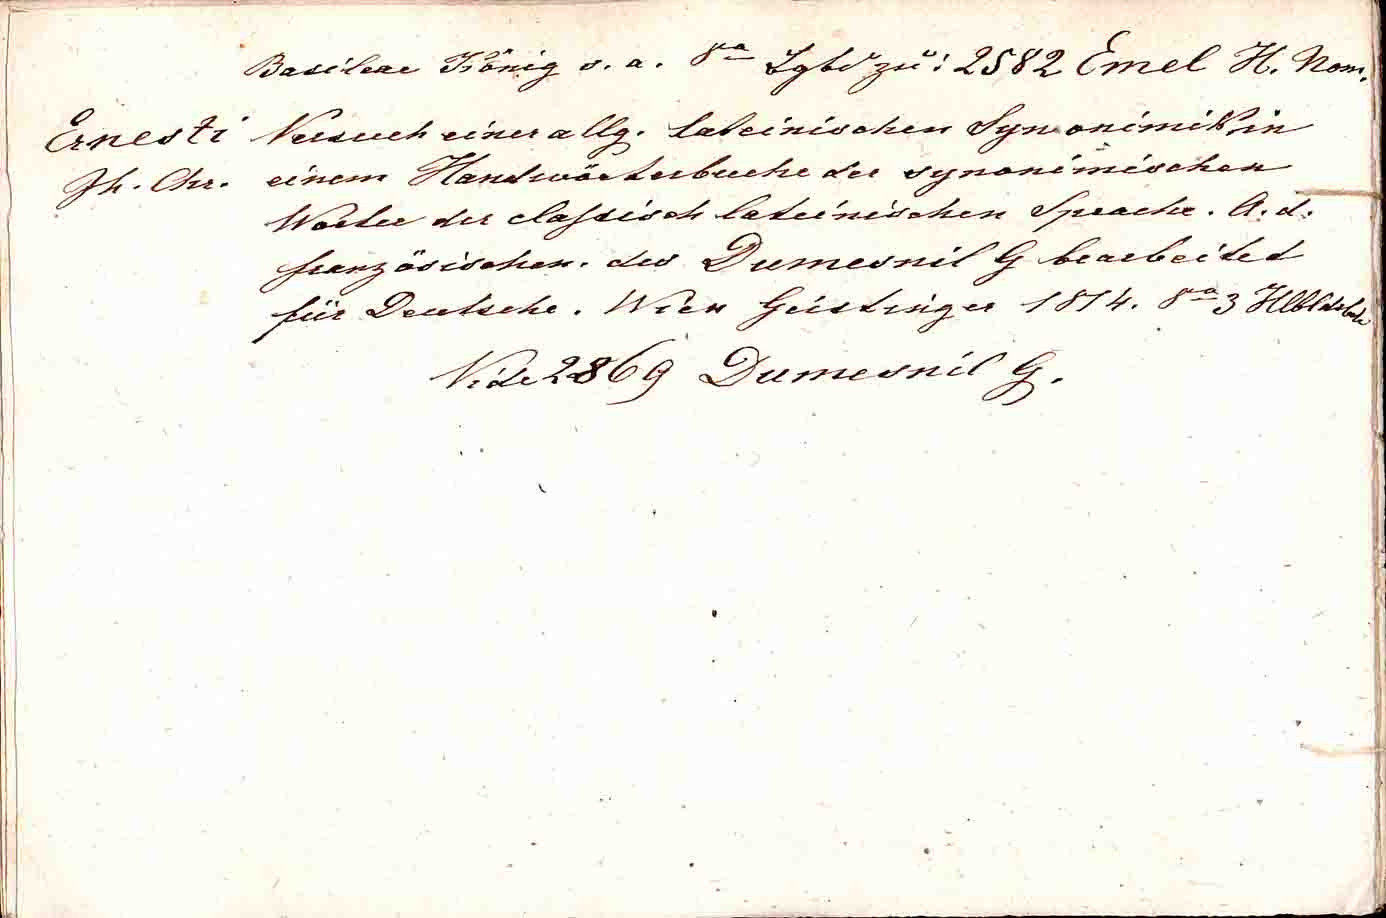 Basileae König s. a. 8ᵛᵃ Zgbd zu: 2582 Emel H. Nom.
Ernesti Versuch einer allg. lateinischen Synonimik in
Jh. Chr. einem Handwörterbuche der synonimischen
Wörter der classisch lateinischen Sprache. A. d.
französischen. des Dumesnil G bearbeitet
für Deutsche. Wien Geistinger 1814. 8ᵛᵃ 3
Vide 2869 Dumesnil G.